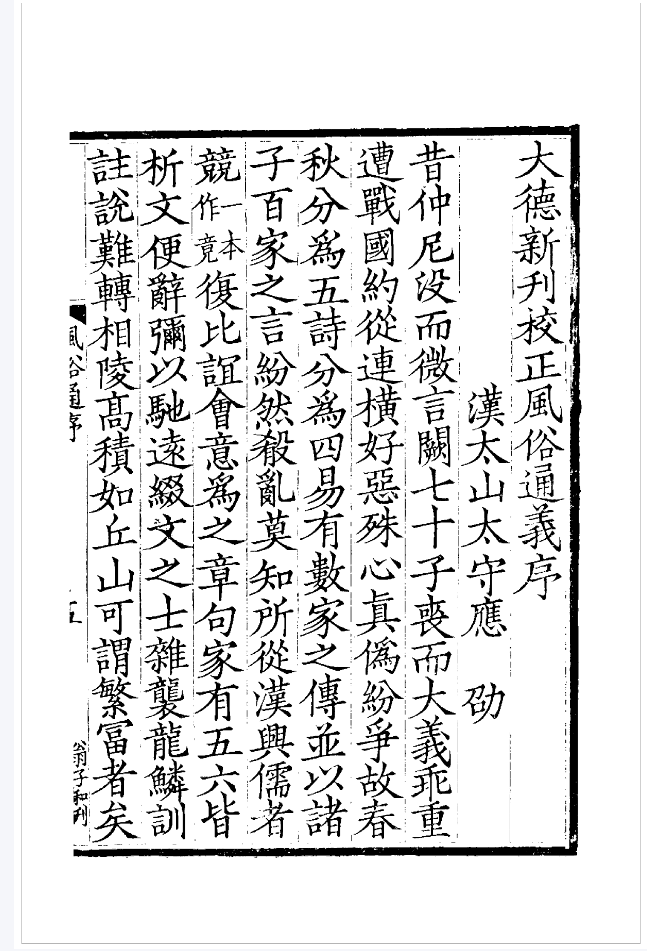 大德新刋校正風俗通義序
漢太山太守應 劭
昔仲尼没而微言闕七十子喪而大義乖重
遭戰國約從連橫好惡殊心真僞紛爭故春
秋分爲五詩分爲四易有數家之傳並以諸
子百家之言紛然殽亂莫知所從漢興儒者
競一本作竟復比誼會意爲之章句家有五六皆
析文便辭彌以馳逺綴文之士雜襲龍鱗訓
註說難轉相陵髙積如丘山可謂繁冨者矣
風俗通序
五